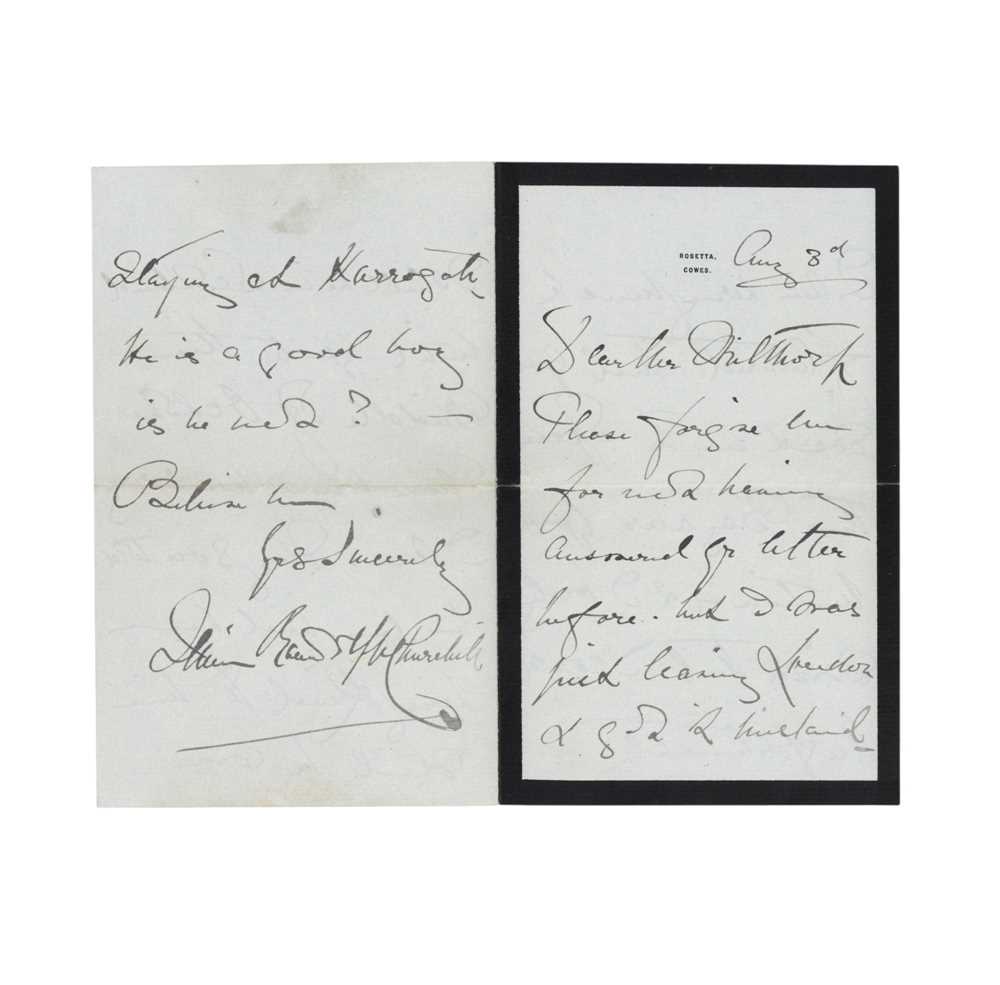 ROSETTA,
COWES.
Aug 3rd
Dear Mr Milthorp
Please forgive me
for not having
answered yr letter
before. but I was
just leaving London
& got it mislaid_
Staying at Harrogate_
He is a good boy
is he not? —
Believe me
Yrs Sincerely
Randolph Churchill